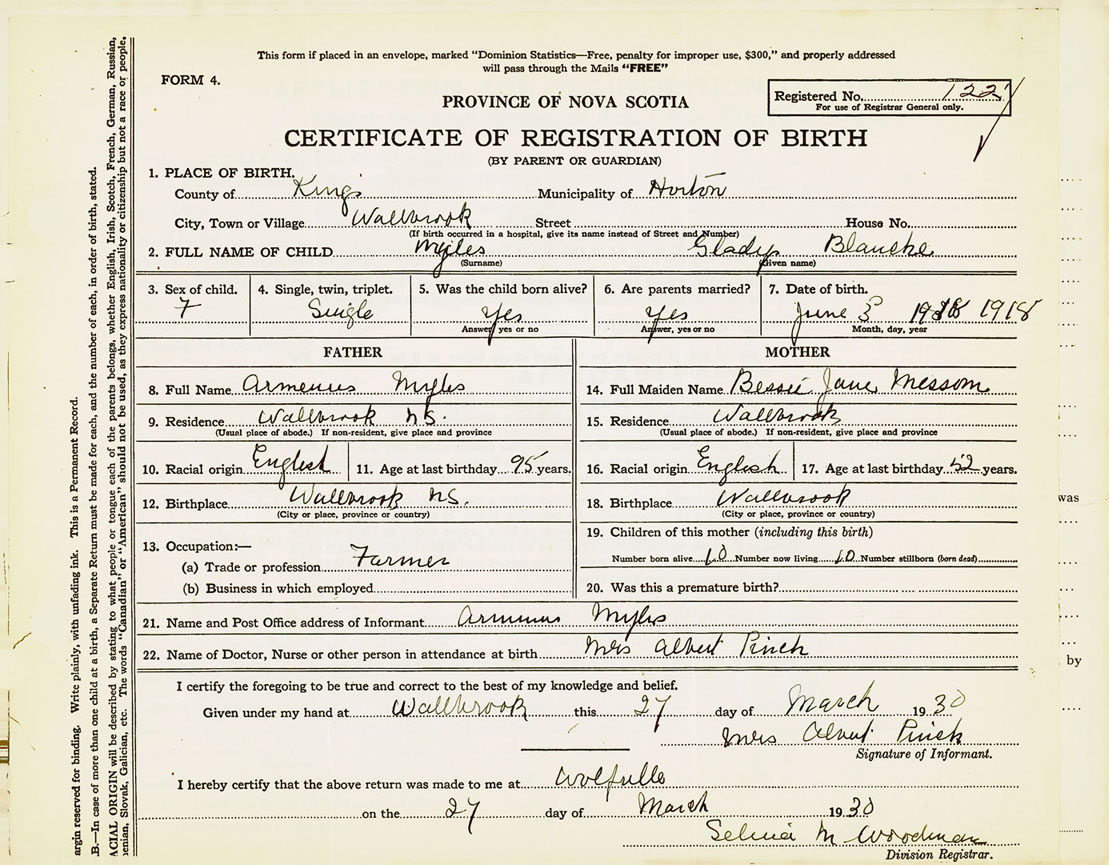 This form if placed in an envelope, marked "Dominion Statistics—Free, penalty for improper use, $300," and properly addressed
will pass through the Mails "FREE"
FORM 4.
Registered No. 122
For use of Registrar General only.
PROVINCE OF NOVA SCOTIA
CERTIFICATE OF REGISTRATION OF BIRTH
(BY PARENT OR GUARDIAN)
1. PLACE OF BIRTH.
County of Kings Municipality of Horton
City, Town or Village Wallbrook Street House No.
(If birth occurred in a hospital, give its name instead of Street and Number)
2. FULL NAME OF CHILD Myles Gladys Blanche
(Surname) (Given name)
3. Sex of child. 4. Single, twin, triplet. 5. Was the child born alive? 6. Are parents married? 7. Date of birth.
F Single Yes Yes June 3 1918
Answer yes or no Answer, yes or no Month, day, year
FATHER MOTHER
8. Full Name Armenus Myles 14. Full Maiden Name Bessie Jane Messom
9. Residence Wallbrook N.S. 15. Residence Wallbrook
(Usual place of abode.) If non-resident, give place and province (Usual place of abode.) If non-resident, give place and province
10. Racial origin English 11. Age at last birthday 95 years. 16. Racial origin English 17. Age at last birthday 52 years.
12. Birthplace Wallbrook N.S. 18. Birthplace Wallbrook
(City or place, province or country) (City or place, province or country)
19. Children of this mother (including this birth)
13. Occupation:—
(a) Trade or profession Farmer Number born alive 10 Number now living 10 Number stillborn (born dead)
(b) Business in which employed 20. Was this a premature birth?
21. Name and Post Office address of Informant Armenus Myles
22. Name of Doctor, Nurse or other person in attendance at birth Mrs Albert Pinch
I certify the foregoing to be true and correct to the best of my knowledge and belief.
Given under my hand at Wallbrook this 27 day of March 1930
Mrs Albert Pinch
Signature of Informant.
I hereby certify that the above return was made to me at Wolfville
on the 27 day of March 1930
Selina M Woodman
Division Registrar.
argin reserved for binding. Write plainly, with unfading ink. This is a Permanent Record.
.B.—In case of more than one child at a birth, a Separate Return must be made for each, and the number of each, in order of birth, stated.
ACIAL ORIGIN will be described by stating to what people or tongue each of the parents belongs, whether English, Irish, Scotch, French, German, Russian,
enian, Slovak, Galician, etc. The words "Canadian" or "American" should not be used, as they express nationality or citizenship but not a race or people.
was
by